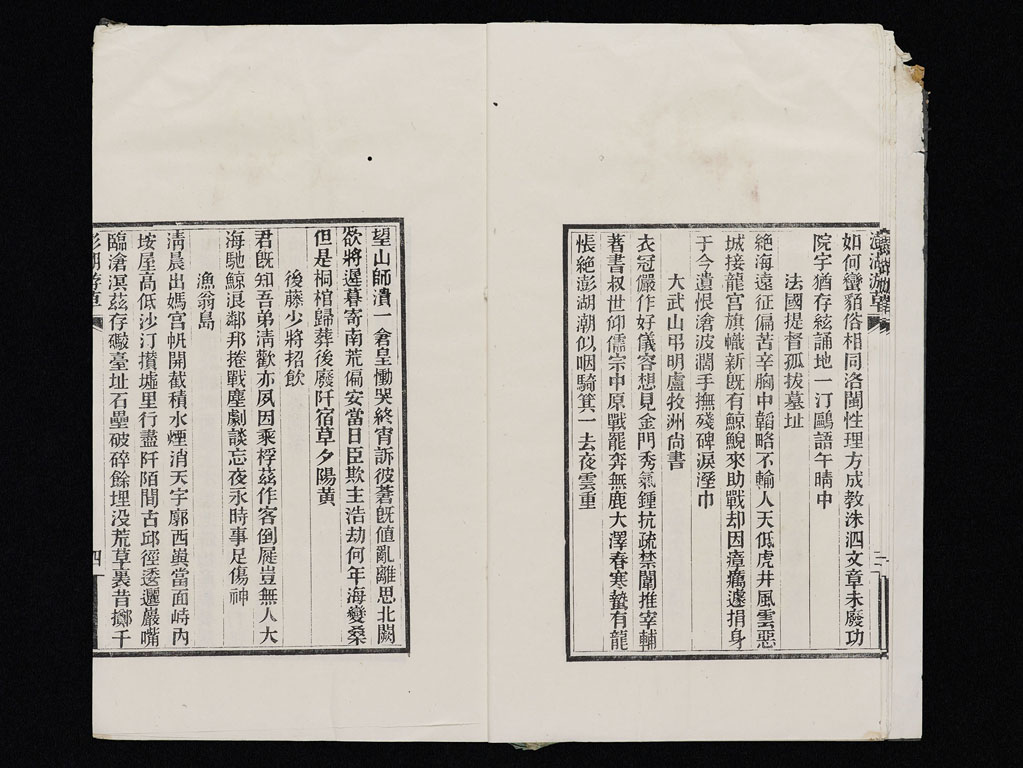 澎湖游草
如何蠻貊俗相同洛閩性理方成教洙泗文章未廢功
院宇猶存絃誦地一汀鷗語午晴中
法國提督孤拔墓址
絶海遠征偏苦辛胸中韜略不輸人天低虎井風雲惡
城接龍宮旗幟新旣有鯨鯢來助戰却因瘴癘遽捐身
于今遺恨滄波濶手撫殘碑淚溼巾
大武山弔明盧牧洲尚書
衣冠儼作好儀容想見金門秀氣鍾抗疏禁闈推宰輔
蓍書叔世仰儒宗中原戰罷奔無鹿大澤春寒蟄有龍
悵絶彭湖潮似咽騎箕一去夜雲重
望山師潰一倉皇慟哭終宵訴彼蒼旣値亂離思北闕
欲將遲暮寄南荒偏安當日臣欺主浩劫何年海變桑
但是桐棺歸葬後廢阡宿草夕陽黄
後藤少將招飲
君旣知吾弟淸歡亦夙因乘桴茲作客倒屣豈無人大
海馳鯨浪鄰邦捲戰塵劇談忘夜永時事足傷神
漁翁島
淸晨出媽宮帆開截積水煙消天宇廓西嶼當面峙內
垵屋高低沙汀攢墟里行盡阡陌間古邱徑逶邐巖嘴
臨滄溟茲存礮臺址石壘破碎餘埋没荒草裏昔擲千
四